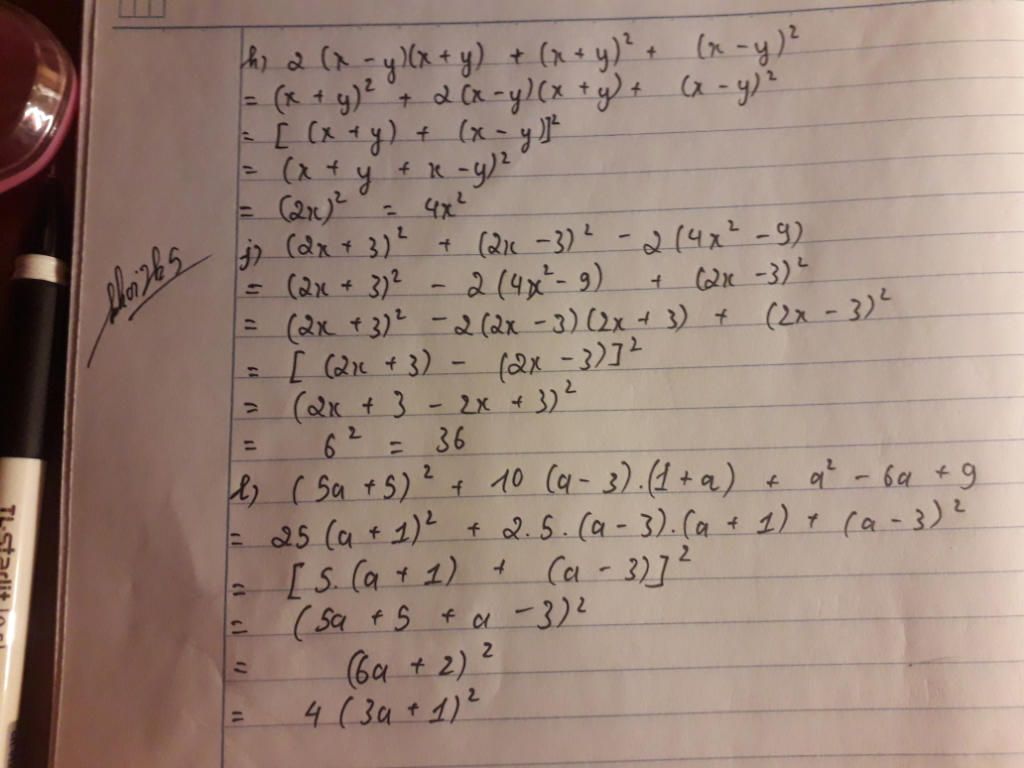 h) 2 (x - y)(x + y) + (x + y)² + (x - y)²
= (x + y)² + 2(x - y)(x + y) + (x - y)²
= [ (x + y) + (x - y)]²
= (x + y + x - y)²
= (2x)² = 4x²
j) (2x + 3)² + (2x - 3)² - 2(4x² - 9)
= (2x + 3)² - 2(4x² - 9) + (2x - 3)²
= (2x + 3)² - 2(2x - 3)(2x + 3) + (2x - 3)²
= [ (2x + 3) - (2x - 3)]²
= (2x + 3 - 2x + 3)²
= 6² = 36
l) (5a + 5)² + 10 (a - 3).(1 + a) + a² - 6a + 9
= 25(a + 1)² + 2.5.(a - 3).(a + 1) + (a - 3)²
= [5.(a + 1) + (a - 3)]²
= (5a + 5 + a - 3)²
= (6a + 2)²
= 4 (3a + 1)²